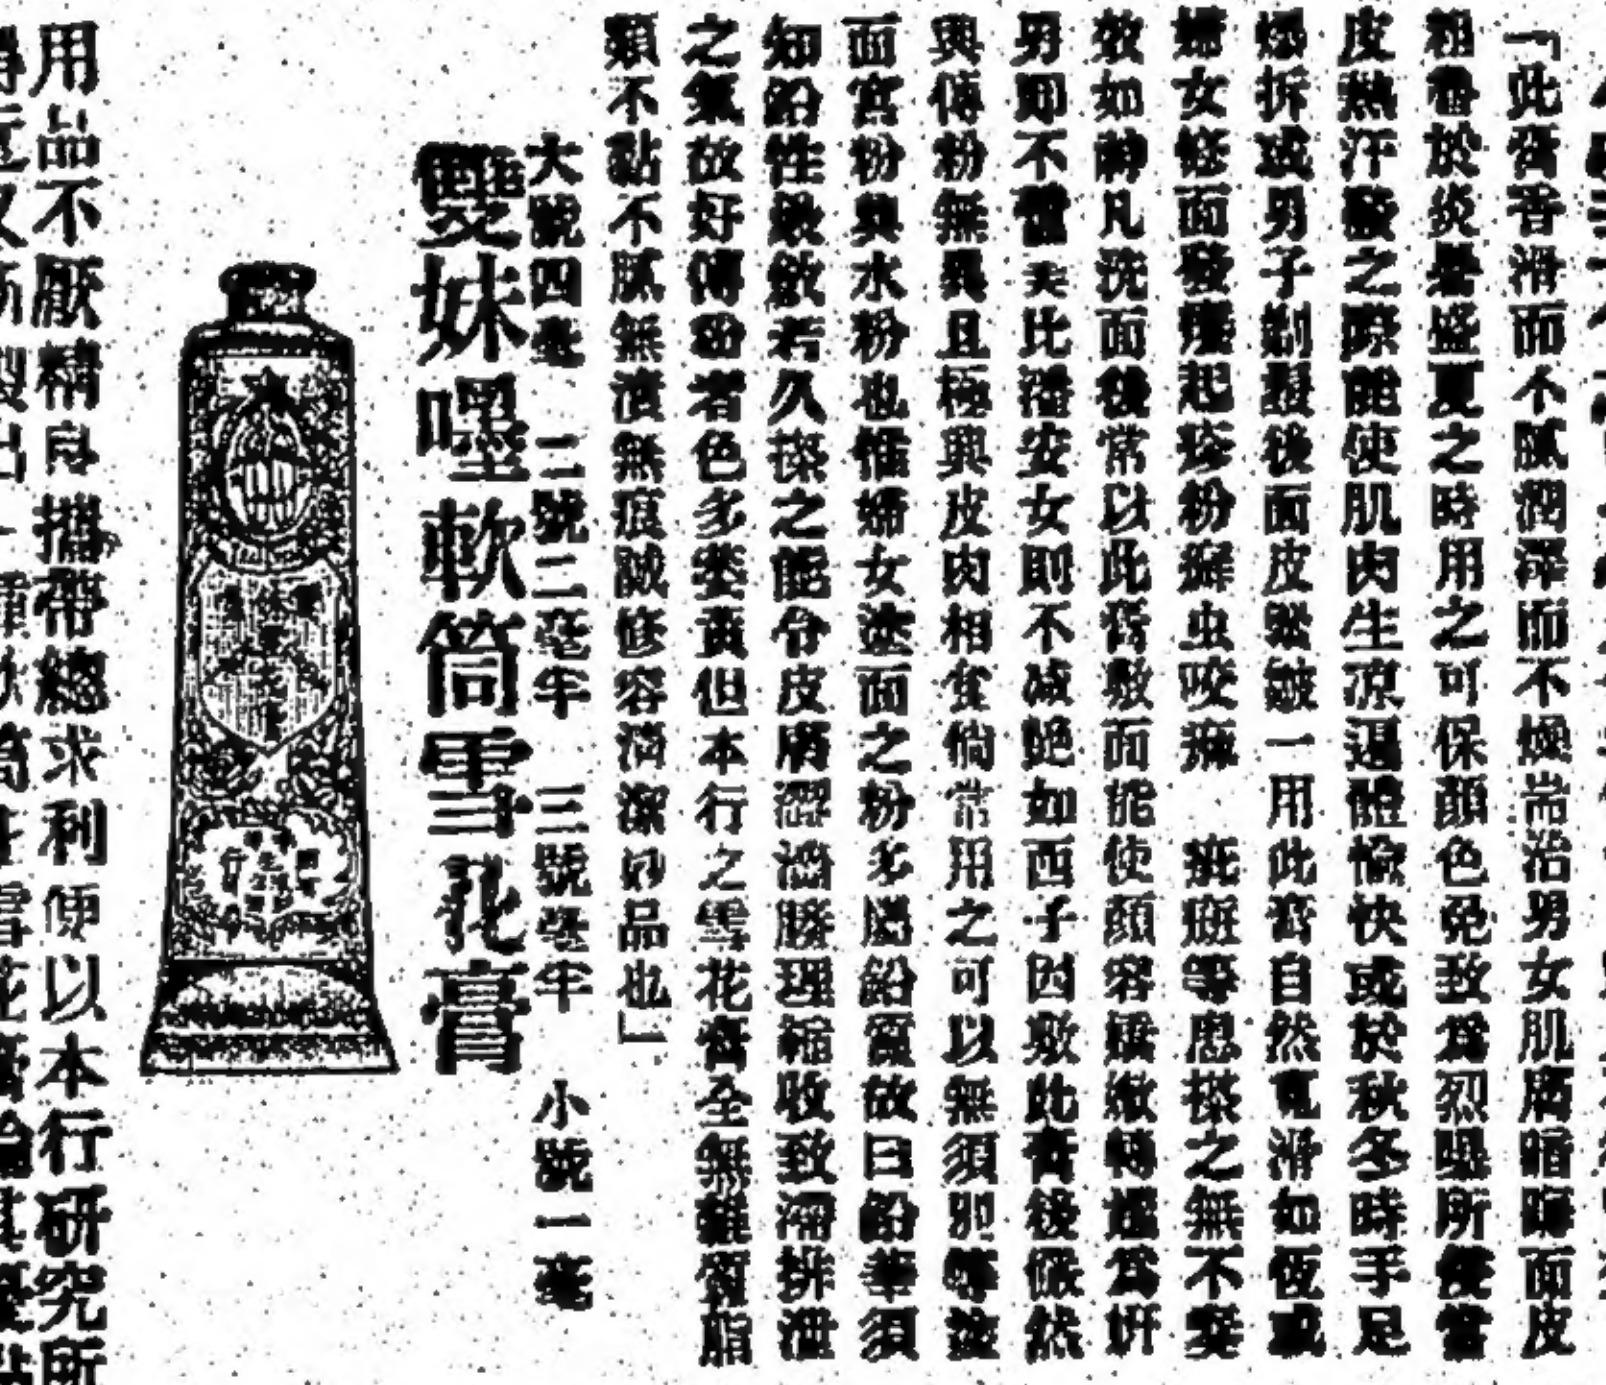 「此膏香滑而不膩潤澤而不燥耑治男女肌膚暗晦面皮
粗香於炎暑盛夏之時用之可保顏色免致為烈陽所侵當
皮熱汗酸之際能使肌肉生凉遏體愉快或於秋冬時手足
燥拆或男子剃鬚後面皮緊皺一用此膏自然寬滑如恆或
婦女修面發癢起疹粉癬虫咬痲 疵斑等患搽之無不奏
效如神凡洗面後常以此膏敷面能使顏容嬌嫩轉媸為妍
男即不讓美比潘安女則不减艶如西子因敷此膏後儼然
與傅粉無異且極與皮肉相宜倘常用之可以無須別等塗
面宮粉與水粉也惟婦女塗面之粉多屬鉛質故曰鉛華須
知鉛性最斂若久搽之能令皮膚澀滯腠理縮收致滯排泄
之氣故好傅粉者色多萎黃但本行之雪花膏全無雜質脂
類不黏不膩無漬無痕誠修容清潔妙品也」
大號四毫 二號二毫半 三號毫半 小號一毫
雙妹嚜軟筒雪花膏
用品不厭精良攜帶總求利便以本行研究所